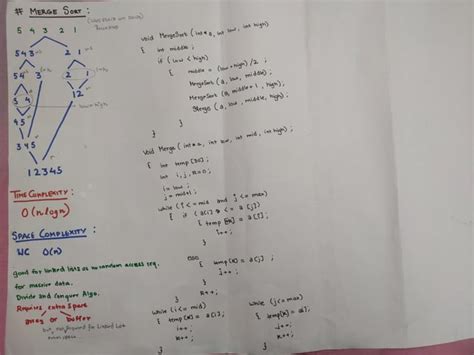 # MERGE SORT :
5 4 3 2 1
5 4 3
2 1
5 4
3
2
1
5
4
1 2
1 2 3 4 5
TIME COMPLEXITY :
O(n logn)
SPACE COMPLEXITY :
WC O(n)
good for linked lists as no random access req.
for massive data.
Divide and Conquer Algo.
Requires extra space
array or buffer
but, not required for Linked List
void MergeSort (int *a, int low, int high)
{ int middle;
if (low < high)
{ middle = (low+high)/2 ;
MergeSort (a, low, middle);
MergeSort (a, middle+1, high)
Merge (a, low, middle, high)
}
}
void Merge (int *a, int low, int mid, int high)
{ int temp[50];
int i, j, k=0;
i = low;
j = mid+1;
while (i <= mid and j <= max)
{ if (a[i] <= a[j])
{ temp[k] = a[i];
i++;
}
else { temp[k] = a[j] ;
j++;
}
k++;
}
while (i <= mid)
{ temp[k] = a[i];
i++;
k++;
}
while (j <= max)
{ temp[k] = a[j];
j++;
k++;
}